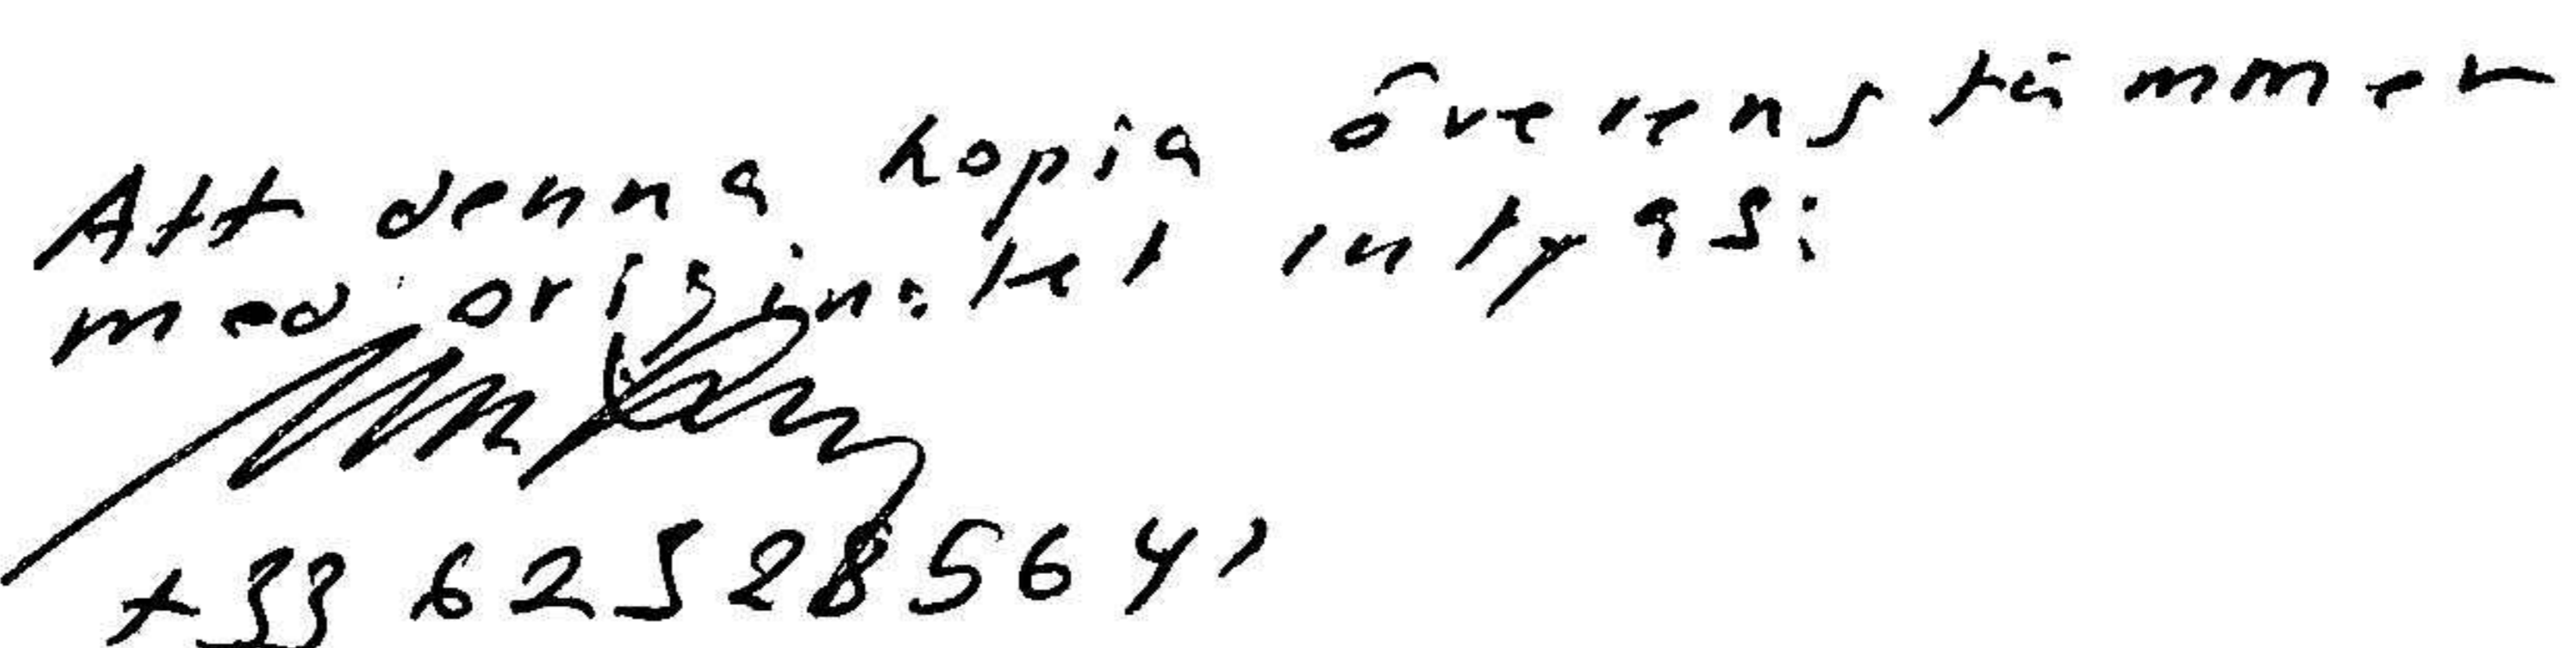 Att denna kopia överenstämmer
med originalet intygas:
+33 625285641